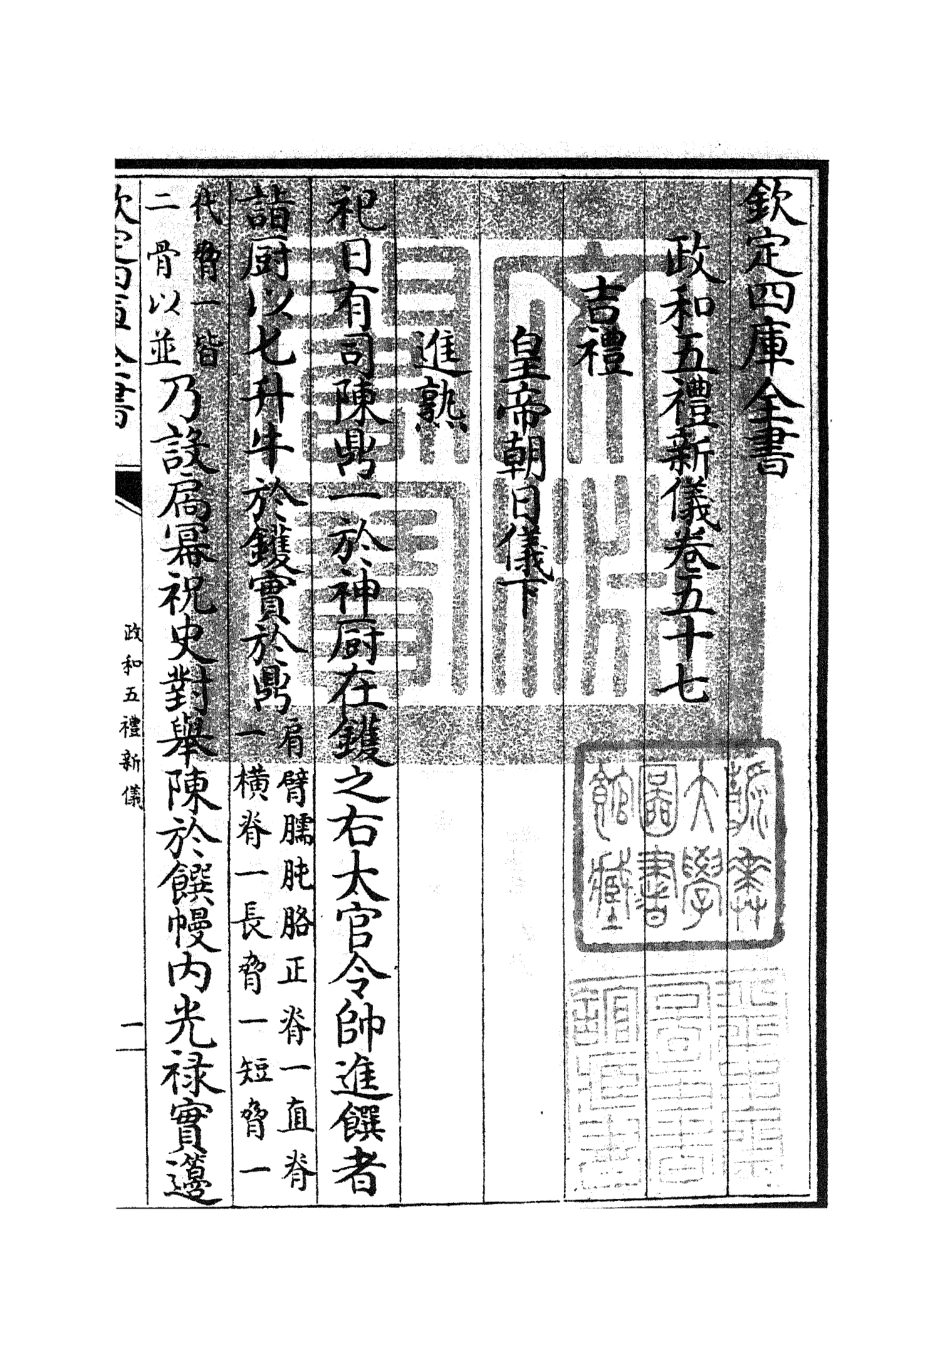 欽定四庫全書
政和五禮新儀卷五十七
吉禮
皇帝朝日儀下
進熟
祀日有司陳鼎一於神厨在鑊之右太官令帥進饌者
詣厨以七升牛於鑊實於鼎
肩臂臑肫胳正脊一直脊
一横脊一長脅一短脅一
代脅一皆
二骨以並
乃設扃冪祝史對舉陳於饌幔内光禄實籩
欽定四庫全書
政和五禮新儀
一
大學
圖書
館藏